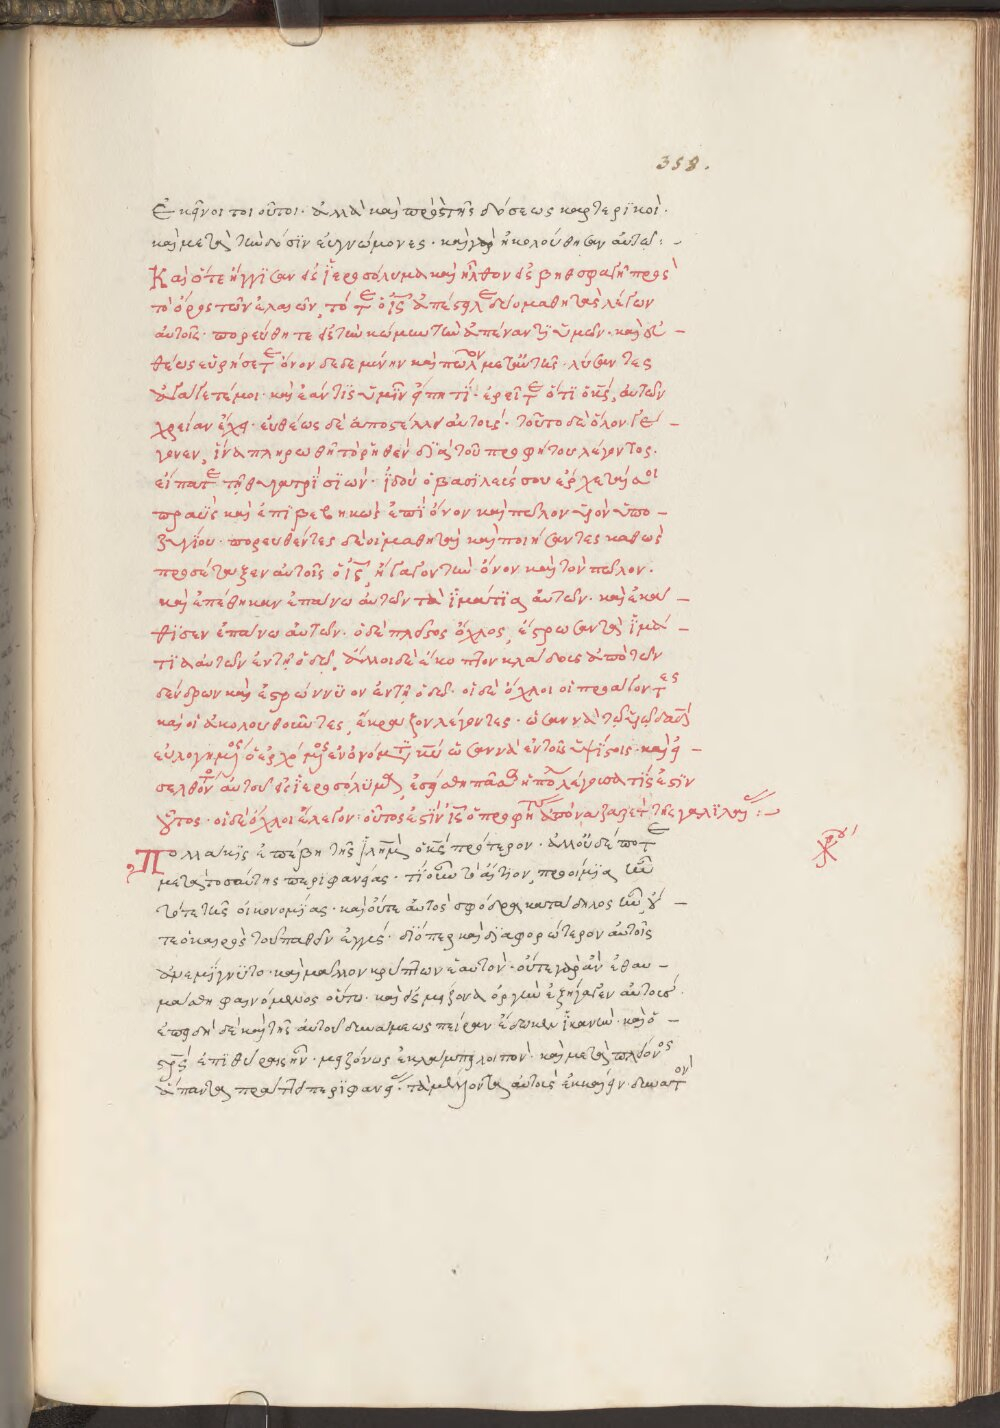 358.
Ἐκεῖνοι τοι οὗτοι· ἀλλὰ καὶ πρὸ τῆς δόσεως καρτερϊκοί·
καὶ μετὰ τὴν δόσϊν εὐγνώμονες· καὶ γὰρ ἠκολούθησαν αὐτῶ:~
Καὶ ὅτε ἤγγϊσαν εἰς ϊεροσόλυμα καὶ ἦλθον εἰς βηθσφαγῆ πρὸς
τὸ ὄρος τῶν ἐλαιῶν, τότε ὁ ις ἀπέστειλε δύο μαθητὰς λέγων
αὐτοῖς· πορεύθητε εἰς τὴν κώμην τὴν ἀπέναντϊ ὑμῶν· καὶ εὐ–
θέως εὑρήσετε ὄνον δεδεμένην καὶ πῶλον μετ' αὐτῆς· λύσαντες
ἀγάγετέ μοι· καὶ ἐάν τϊς ὑμῖν εἴπη τϊ· ἐρεῖτε ὅτϊ ὁ κς, αὐτῶν
χρείαν ἔχει· εὐθέως δὲ ἀποστέλλει αὐτούς· τοῦτο δὲ ὅλον γέ–
γονεν, ἵνα πληρωθῆ τὸ ῥηθὲν δϊὰ τοῦ προφήτου λέγοντος·
εἴπατε τῆ θυγατρὶ σϊών· ϊδοὺ ὁ βασϊλεύς σου ἔρχεταί σοι
πραῢς καὶ ἐπϊβεβηκὼς ἐπὶ ὄνον καὶ πῶλον υἱὸν ὑπο–
ζυγίου· πορευθέντες δὲ οἱ μαθηταὶ καὶ ποιήσαντες καθὼς
προσέταξεν αὐτοῖς ὁ ις, ἤγαγον τὴν ὄνον καὶ τὸν πῶλον·
καὶ ἐπέθηκαν ἐπάνω αὐτῶν τὰ ϊμάτϊα αὐτῶν· καὶ ἐκά–
θϊσεν ἐπάνω αὐτῶν· ὁ δὲ πλεῖστος ὄχλος, ἔστρωσαν τὰ ϊμά–
τϊα αὐτῶν ἐν τῆ ὁδῶ, ἄλλοι δὲ ἔκοπτον κλάδους ἀπὸ τῶν
δένδρων καὶ ἐστρώννϋον ἐν τῆ ὁδῶ· οἱ δὲ ὄχλοι οἱ προάγοντες
καὶ οἱ ἀκολουθοῦντες, ἔκραζον λέγοντες· ὡσαννὰ τῶ υἱῶ δαδ
εὐλογημένος ὁ ἐρχόμενος ἐν ὀνόματι κυ ὡσαννὰ ἐν τοῖς ὑψίστοις· καὶ εἰ–
σελθόντος αὐτοῦ εἰς ϊεροσόλϋμα, ἐσείσθη πᾶσα ἡ πόλις λέγουσα τίς ἐστϊν
οὗτος· οἱ δὲ ὄχλοι ἔλεγον· οὗτός ἐστϊν ις ὁ προφήτης ὁ ἀπὸ ναζαρὲτ τῆς γαλϊλαίας:~
Πολλάκϊς ἐπέβη τῆς ϊλημ ὁ κς πρότερον· ἀλλ' οὐδέποτε
μετὰ τοσαύτης περϊφανείας· τί οὖν τὸ αἴτϊον, προοίμϊα ἦν
τότε τῆς οἰκονομίας· καὶ οὔτε αὐτὸς σφόδρα κατάδηλος ἦν οὔ–
τε ὁ καιρὸς τοῦ πάθους ἐγγύς· δϊόπερ καὶ δϊαφορώτερον αὐτοῖς
ἀνεμίγνϋτο· καὶ μᾶλλον κρύπτων ἑαυτόν· οὔτε γὰρ ἂν ἐθαυ–
μάσθη φαινόμενος οὕτω· καὶ εἰς μείζονα ὀργὴν ἐξήγαγεν αὐτούς·
ἐπειδὴ δὲ καὶ τῆς αὐτοῦ δυνάμεως πεῖραν ἔδωκεν ϊκανὴν· καὶ ὁ–
στρς ἐπὶ θύραις ἦν· μειζόνως ἐκλάμπει λοιπόν· καὶ μετὰ πλείονος
ἅπαντα πράττει περϊφανείας· τὰ μέλλοντα αὐτοὺς ἐκκαίειν· δυνατὸν